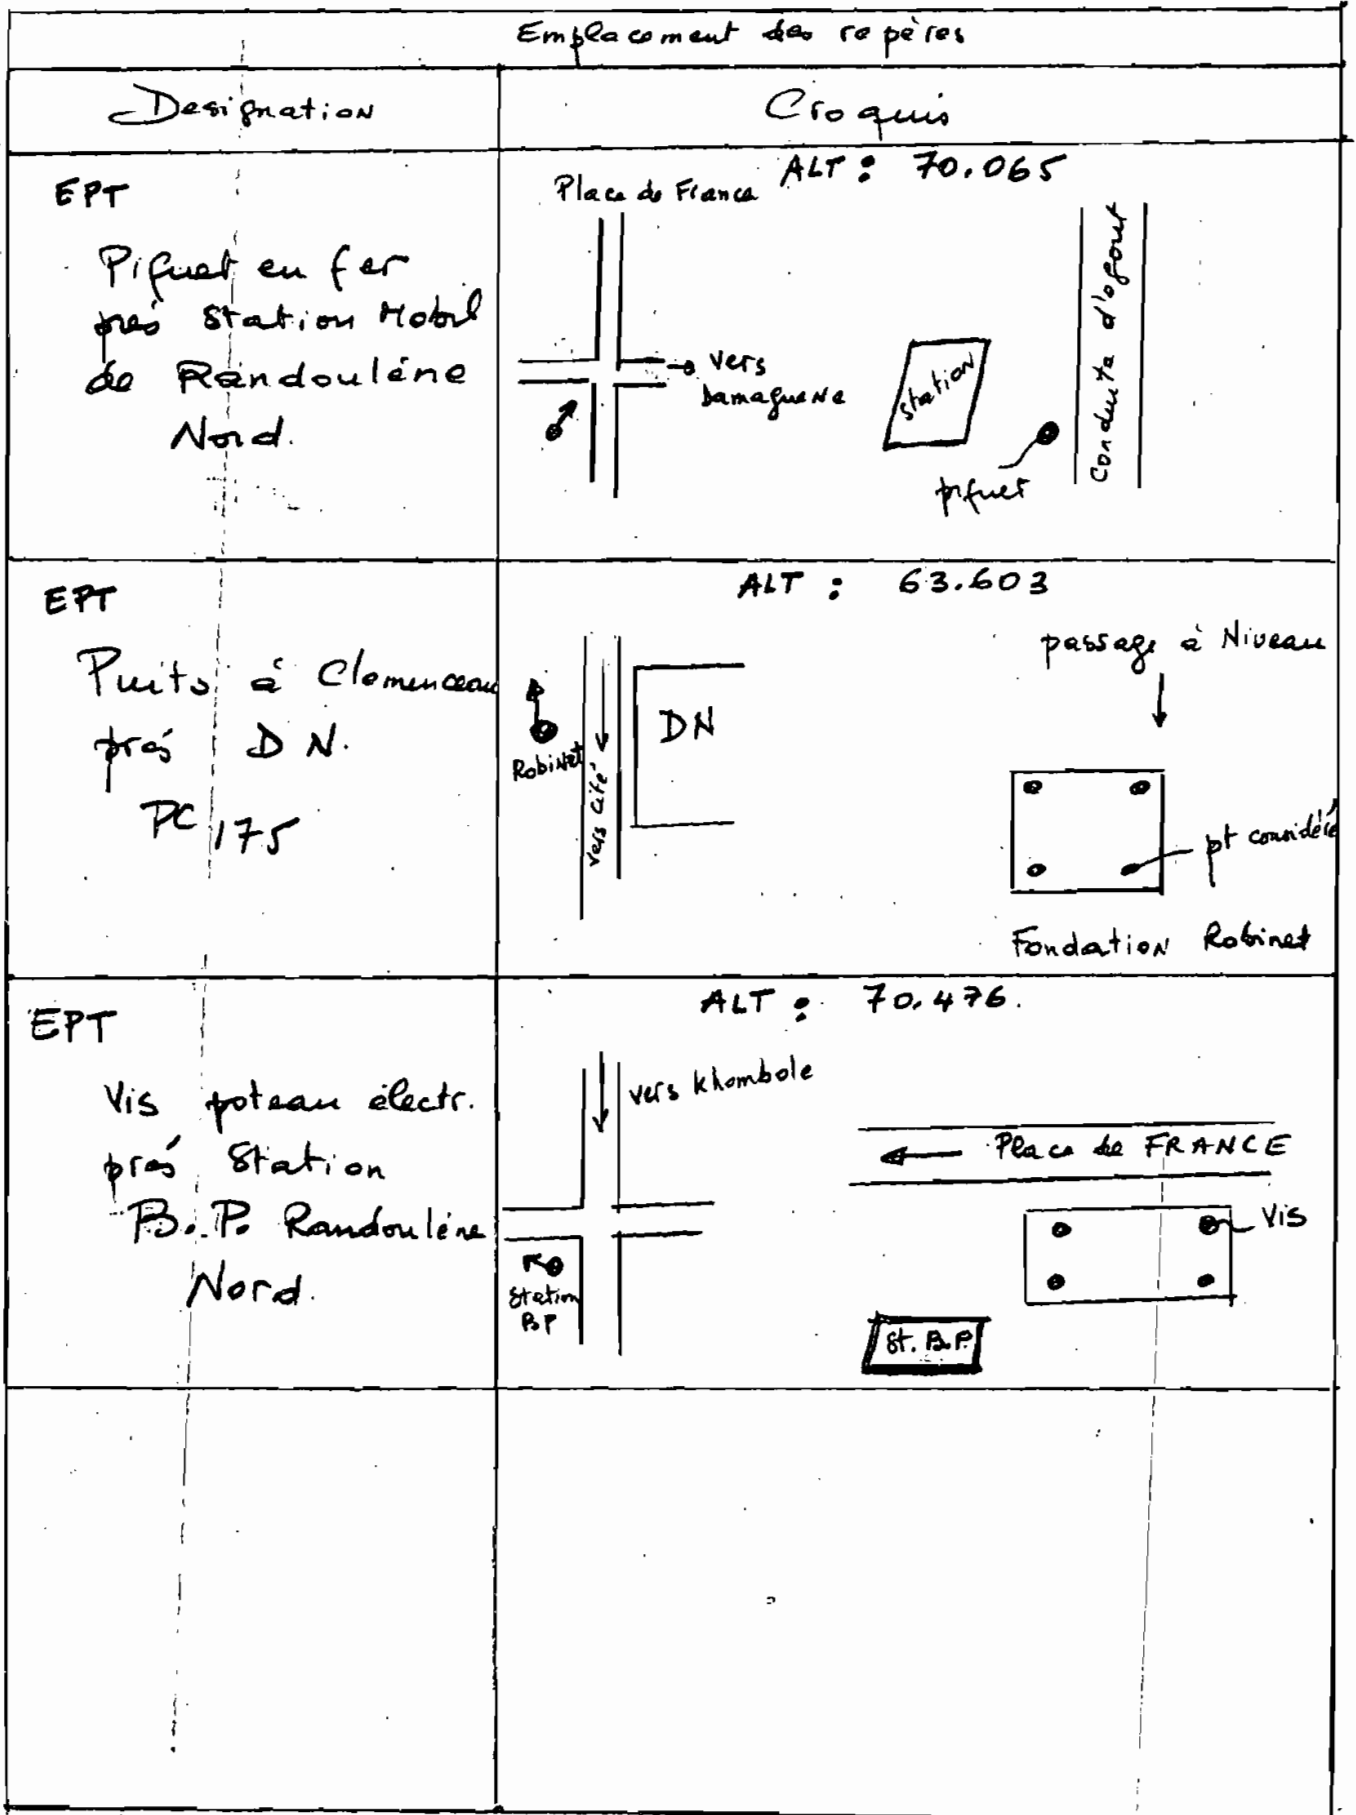 Emplacement des repères
Designation
Croquis
EPT
Piquet en fer
près Station Mobil
de Randouléne
Nord.
ALT : 70.065
Place de France
vers
Damaguene
station
piquet
Conduite d'egout
EPT
Puits à Clemenceau
près DN.
PC 175
ALT : 63.603
Robinet
vers cité
DN
passage à Niveau
pt considéré
Fondation Robinet
EPT
Vis poteau électr.
près Station
B.P. Randouléne
Nord.
ALT : 70.476.
vers Khombole
Station
BP
Place de FRANCE
Vis
St. B.P.